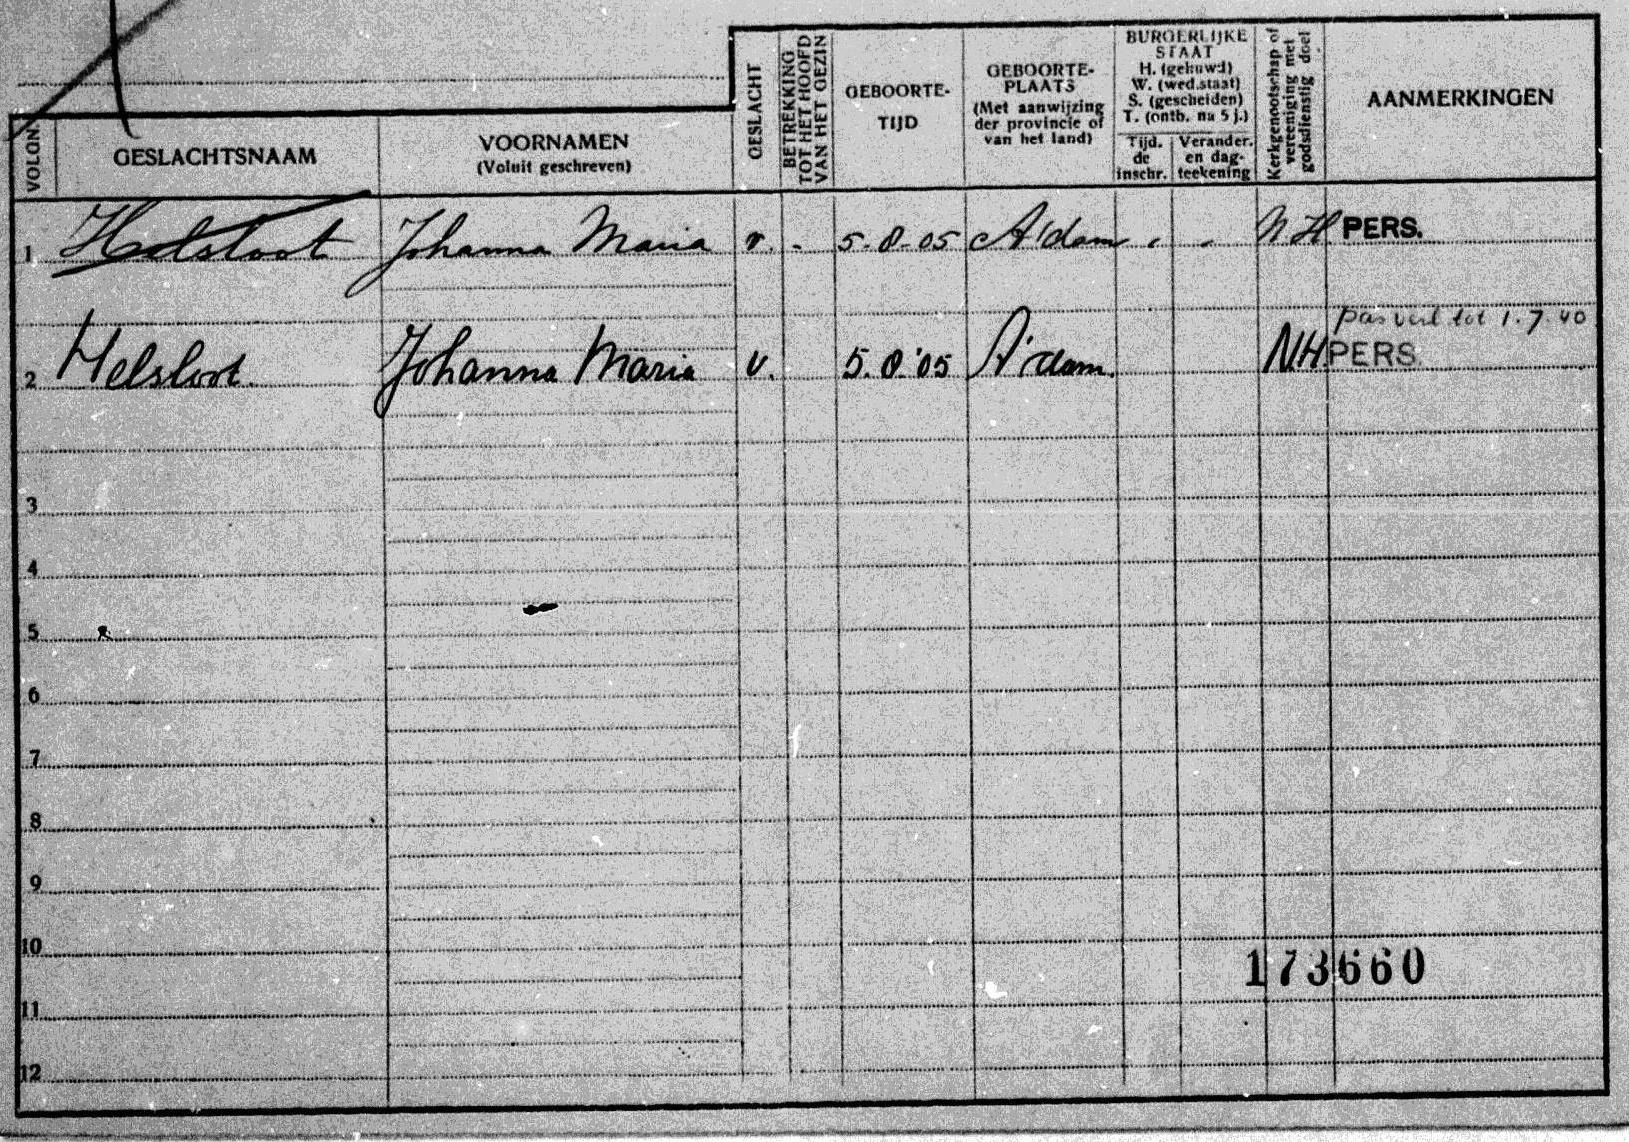 VOLGN.
GESLACHTSNAAM
VOORNAMEN
(Voluit geschreven)
GESLACHT
BETREKKING
TOT HET HOOFD
VAN HET GEZIN
GEBOORTE-
TIJD
GEBOORTE-
PLAATS
(Met aanwijzing
der provincie of
van het land)
BURGERLIJKE
STAAT
H. (gehuwd)
W. (wed.staat)
S. (gescheiden)
T. (ontb. na 5 j.)
Tijd.
de
inschr.
Verander.
en dag-
teekening
Kerkgenootschap of
vereeniging met
godsdienstig doel
AANMERKINGEN
1 Helsloot Johanna Maria v. - 5-8-05 A'dam - - NH PERS.
pas verl tot 1.7.40
2 Helsloot. Johanna Maria v. 5.8.'05 A'dam. N.H. PERS.
3
4
5
6
7
8
9
10
173660
11
12